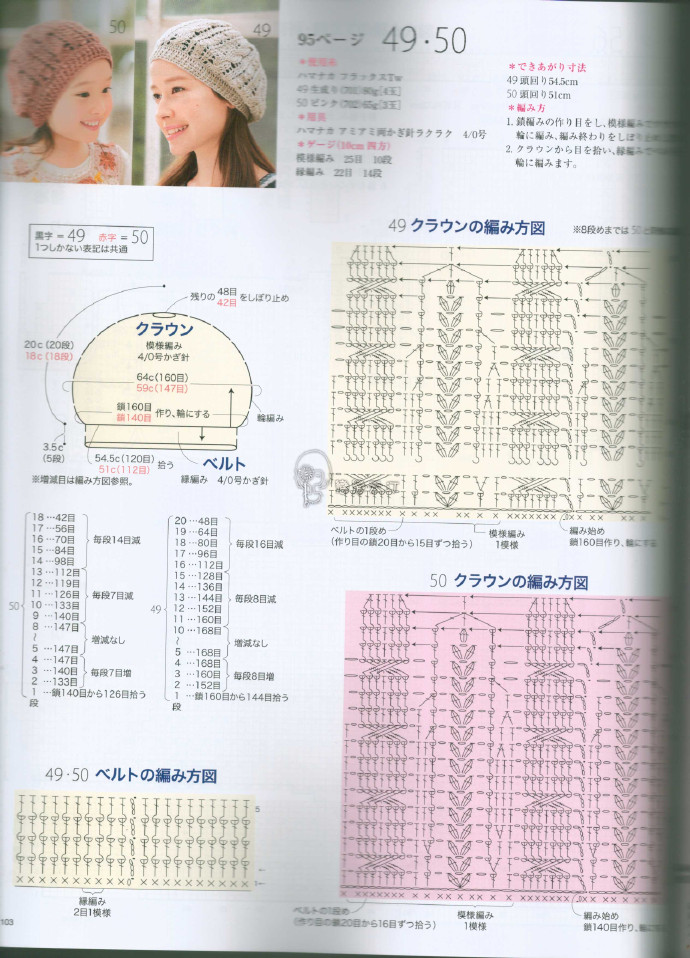 50
49
95ページ 49・50
ハマナカ フラックスTw
49 生成り(701)80g[4玉]
50 ピンク(702)65g[3玉]
ハマナカ アミアミ両かぎ針ラクラク 4/0号
＊ゲージ(10cm四方)
模様編み 25目 10段
縁編み 22目 14段
＊できあがり寸法
49 頭回り54.5cm
50 頭回り51cm
＊編み方
1. 鎖編みの作り目をし、模様編みで
輪に編み、編み終わりをしぼり止め
2. クラウンから目を拾い、縁編みで
輪に編みます。
黒字 = 49 赤字 = 50
1つしかない表記は共通
残りの48目 42目 をしぼり止め
クラウン
模様編み
4/0号かぎ針
20c(20段)
18c(18段)
64c(160目)
59c(147目)
鎖160目
鎖140目
作り、輪にする
輪編み
3.5c
(5段)
54.5c(120目)
51c(112目)
拾う
ベルト
縁編み 4/0号かぎ針
※増減目は編み方図参照。
50
18…42目
17…56目
16…70目
15…84目
14…98目
毎段14目減
13…112目
12…119目
11…126目
10…133目
9…140目
毎段7目減
8…147目
〜
5…147目
増減なし
4…147目
3…140目
2…133目
毎段7目増
1…鎖140目から126目拾う
段
49
20…48目
19…64目
18…80目
17…96目
16…112目
毎段16目減
15…128目
14…136目
13…144目
12…152目
11…160目
毎段8目減
10…168目
〜
5…168目
増減なし
4…168目
3…160目
2…152目
毎段8目増
1…鎖160目から144目拾う
段
49・50 ベルトの編み方図
5
1
縁編み
2目1模様
103
49 クラウンの編み方図
※8段めまでは50と
ベルトの1段め
(作り目の鎖20目から15目ずつ拾う)
模様編み
1模様
編み始め
鎖160目作り、輪にする
50 クラウンの編み方図
ベルトの1段め
(作り目の鎖20目から16目ずつ拾う)
模様編み
1模様
編み始め
鎖140目作り、